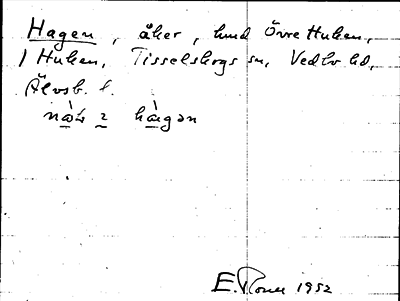 Hagen, åker, hmd Övre Huken,
1 Huken, Tisselskogs sn, Vedbo hd,
Älvsb. l.
nàr 2 hàgan
E. Noreen 1952